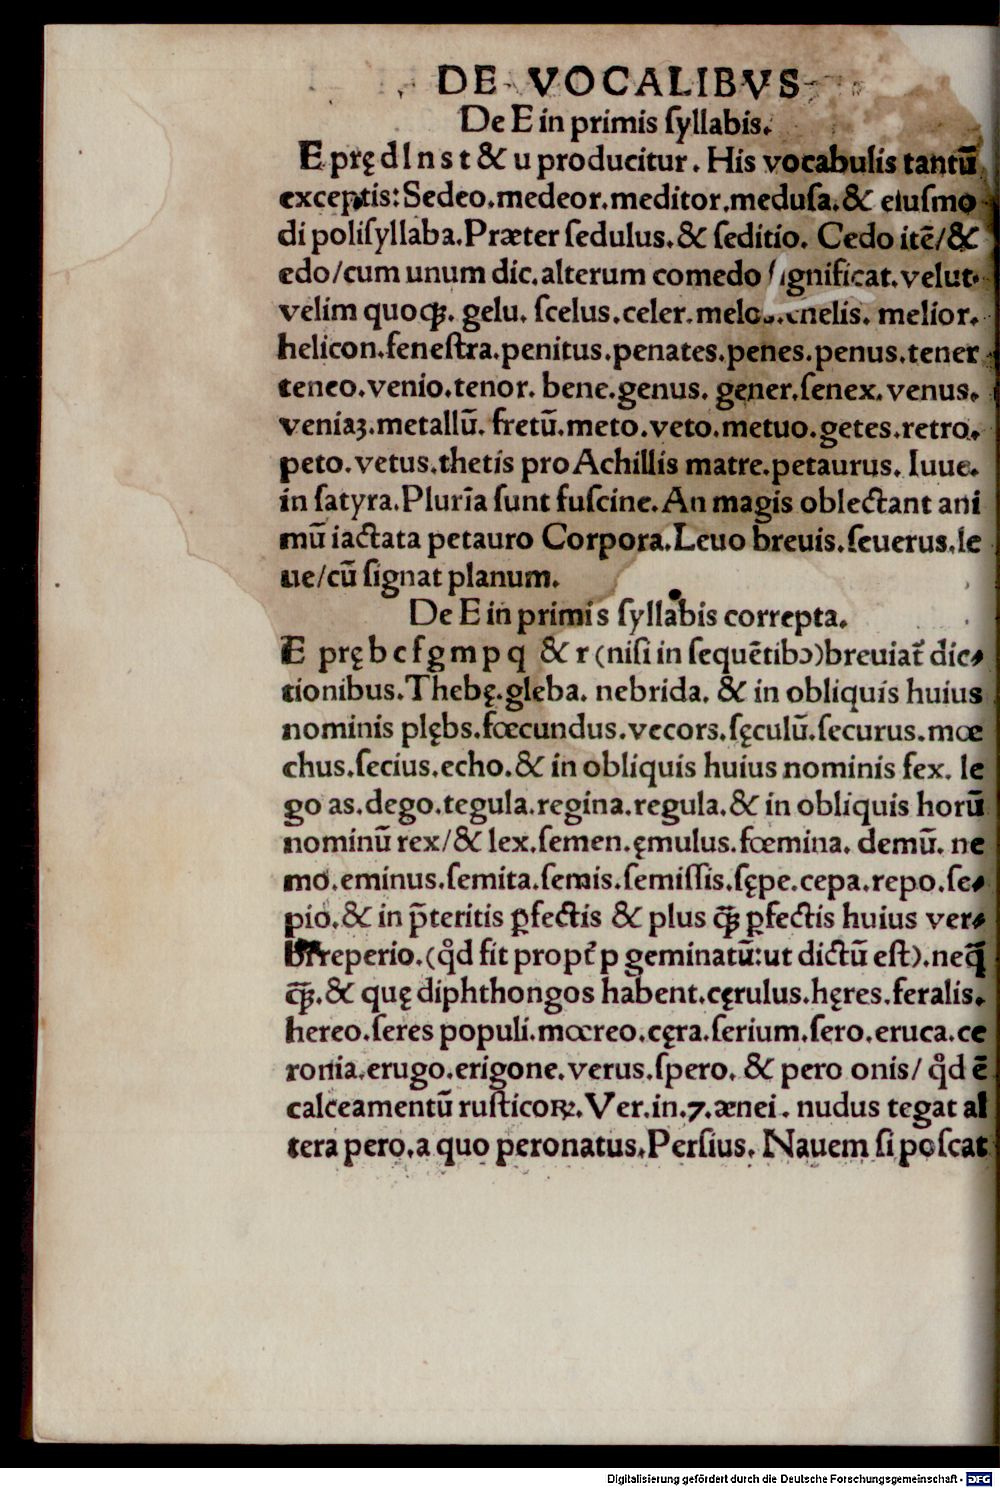 DE VOCALIBVS
De E in primis ſyllabis.
E prę d l n s t & u producitur. His vocabulis tantū
exceptis: Sedeo.medeor.meditor.meduſa.& eiuſmo
di poliſyllaba.Præter ſedulus.& ſeditio. Cedo itē/&
edo/cum unum dic.alterum comedo ſignificat.velut.
velim quoqꝫ. gelu. ſcelus.celer.melos. melis. melior.
helicon.feneſtra.penitus.penates.penes.penus.tener
teneo.venio.tenor. bene.genus. gener.ſenex.venus.
veniaꝫ.metallū. fretū.meto.veto.metuo.getes.retro.
peto.vetus.thetis pro Achillis matre.petaurus. Iuue.
in ſatyra.Plurīa ſunt fuſcine.An magis oblectant ani
mū iactata petauro Corpora.Leuo breuis.ſeuerus.le
ue/cū ſignat planum.
De E in primis ſyllabis correpta.
E prę b c f g m p q & r (niſi in ſequētibꝰ)breuiat᷑ dic⸗
tionibus.Thebę.gleba. nebrida. & in obliquis huius
nominis plębs.fœcundus.vecors.ſęculū.ſecurus.mœ
chus.ſecius.echo.& in obliquis huius nominis fex. le
go as.dego.tegula.regina.regula.& in obliquis horū
nominū rex/& lex.ſemen.ęmulus.fœmina. demū. ne
mo.eminus.ſemita.ſemis.ſemiſſis.ſępe.cepa.repo.ſe⸗
pio.& in p̄teritis ꝑfectis & plus qꝫ̄ ꝑfectis huius ver⸗
bi reperio.(qͦd fit propt᷑ p geminatū:ut dictū eſt).neq̄
qꝫ̄.& quę diphthongos habent.cęrulus.hęres.feralis.
hereo.ſeres populi.mœreo.cęra.ſerium.ſero.eruca.ce
ronia.erugo.erigone.verus.ſpero. & pero onis/ qͦd ē
calceamentū ruſticoꝝ.Ver.in.7.ænei. nudus tegat al
tera pero.a quo peronatus.Perſius. Nauem ſi poſcat
Digitalisierung gefördert durch die Deutsche Forschungsgemeinschaft - DFG